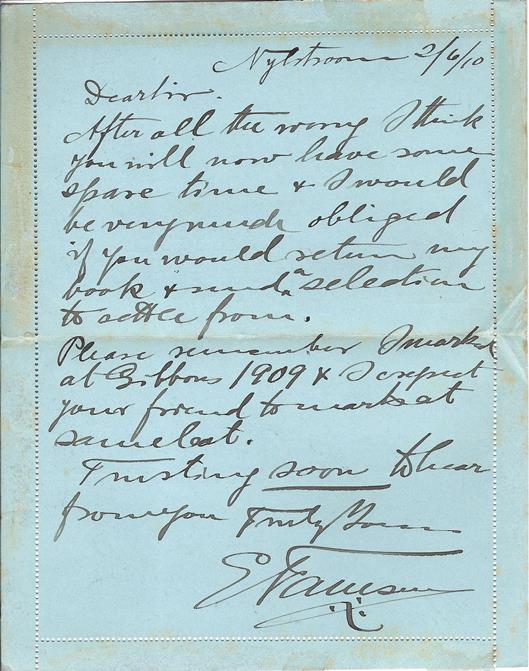 Nylstroom 2/6/10
Dear Sir.
After all the worry I think
you will now have some
spare time & I would
be very much obliged
if you would return my
book & send a selection
to settle from.
Please remember I marked
at Gibbons 1909 & I expect
your friend to mark at
same Cat.
Trusting soon to hear
from you Truly Yours
E